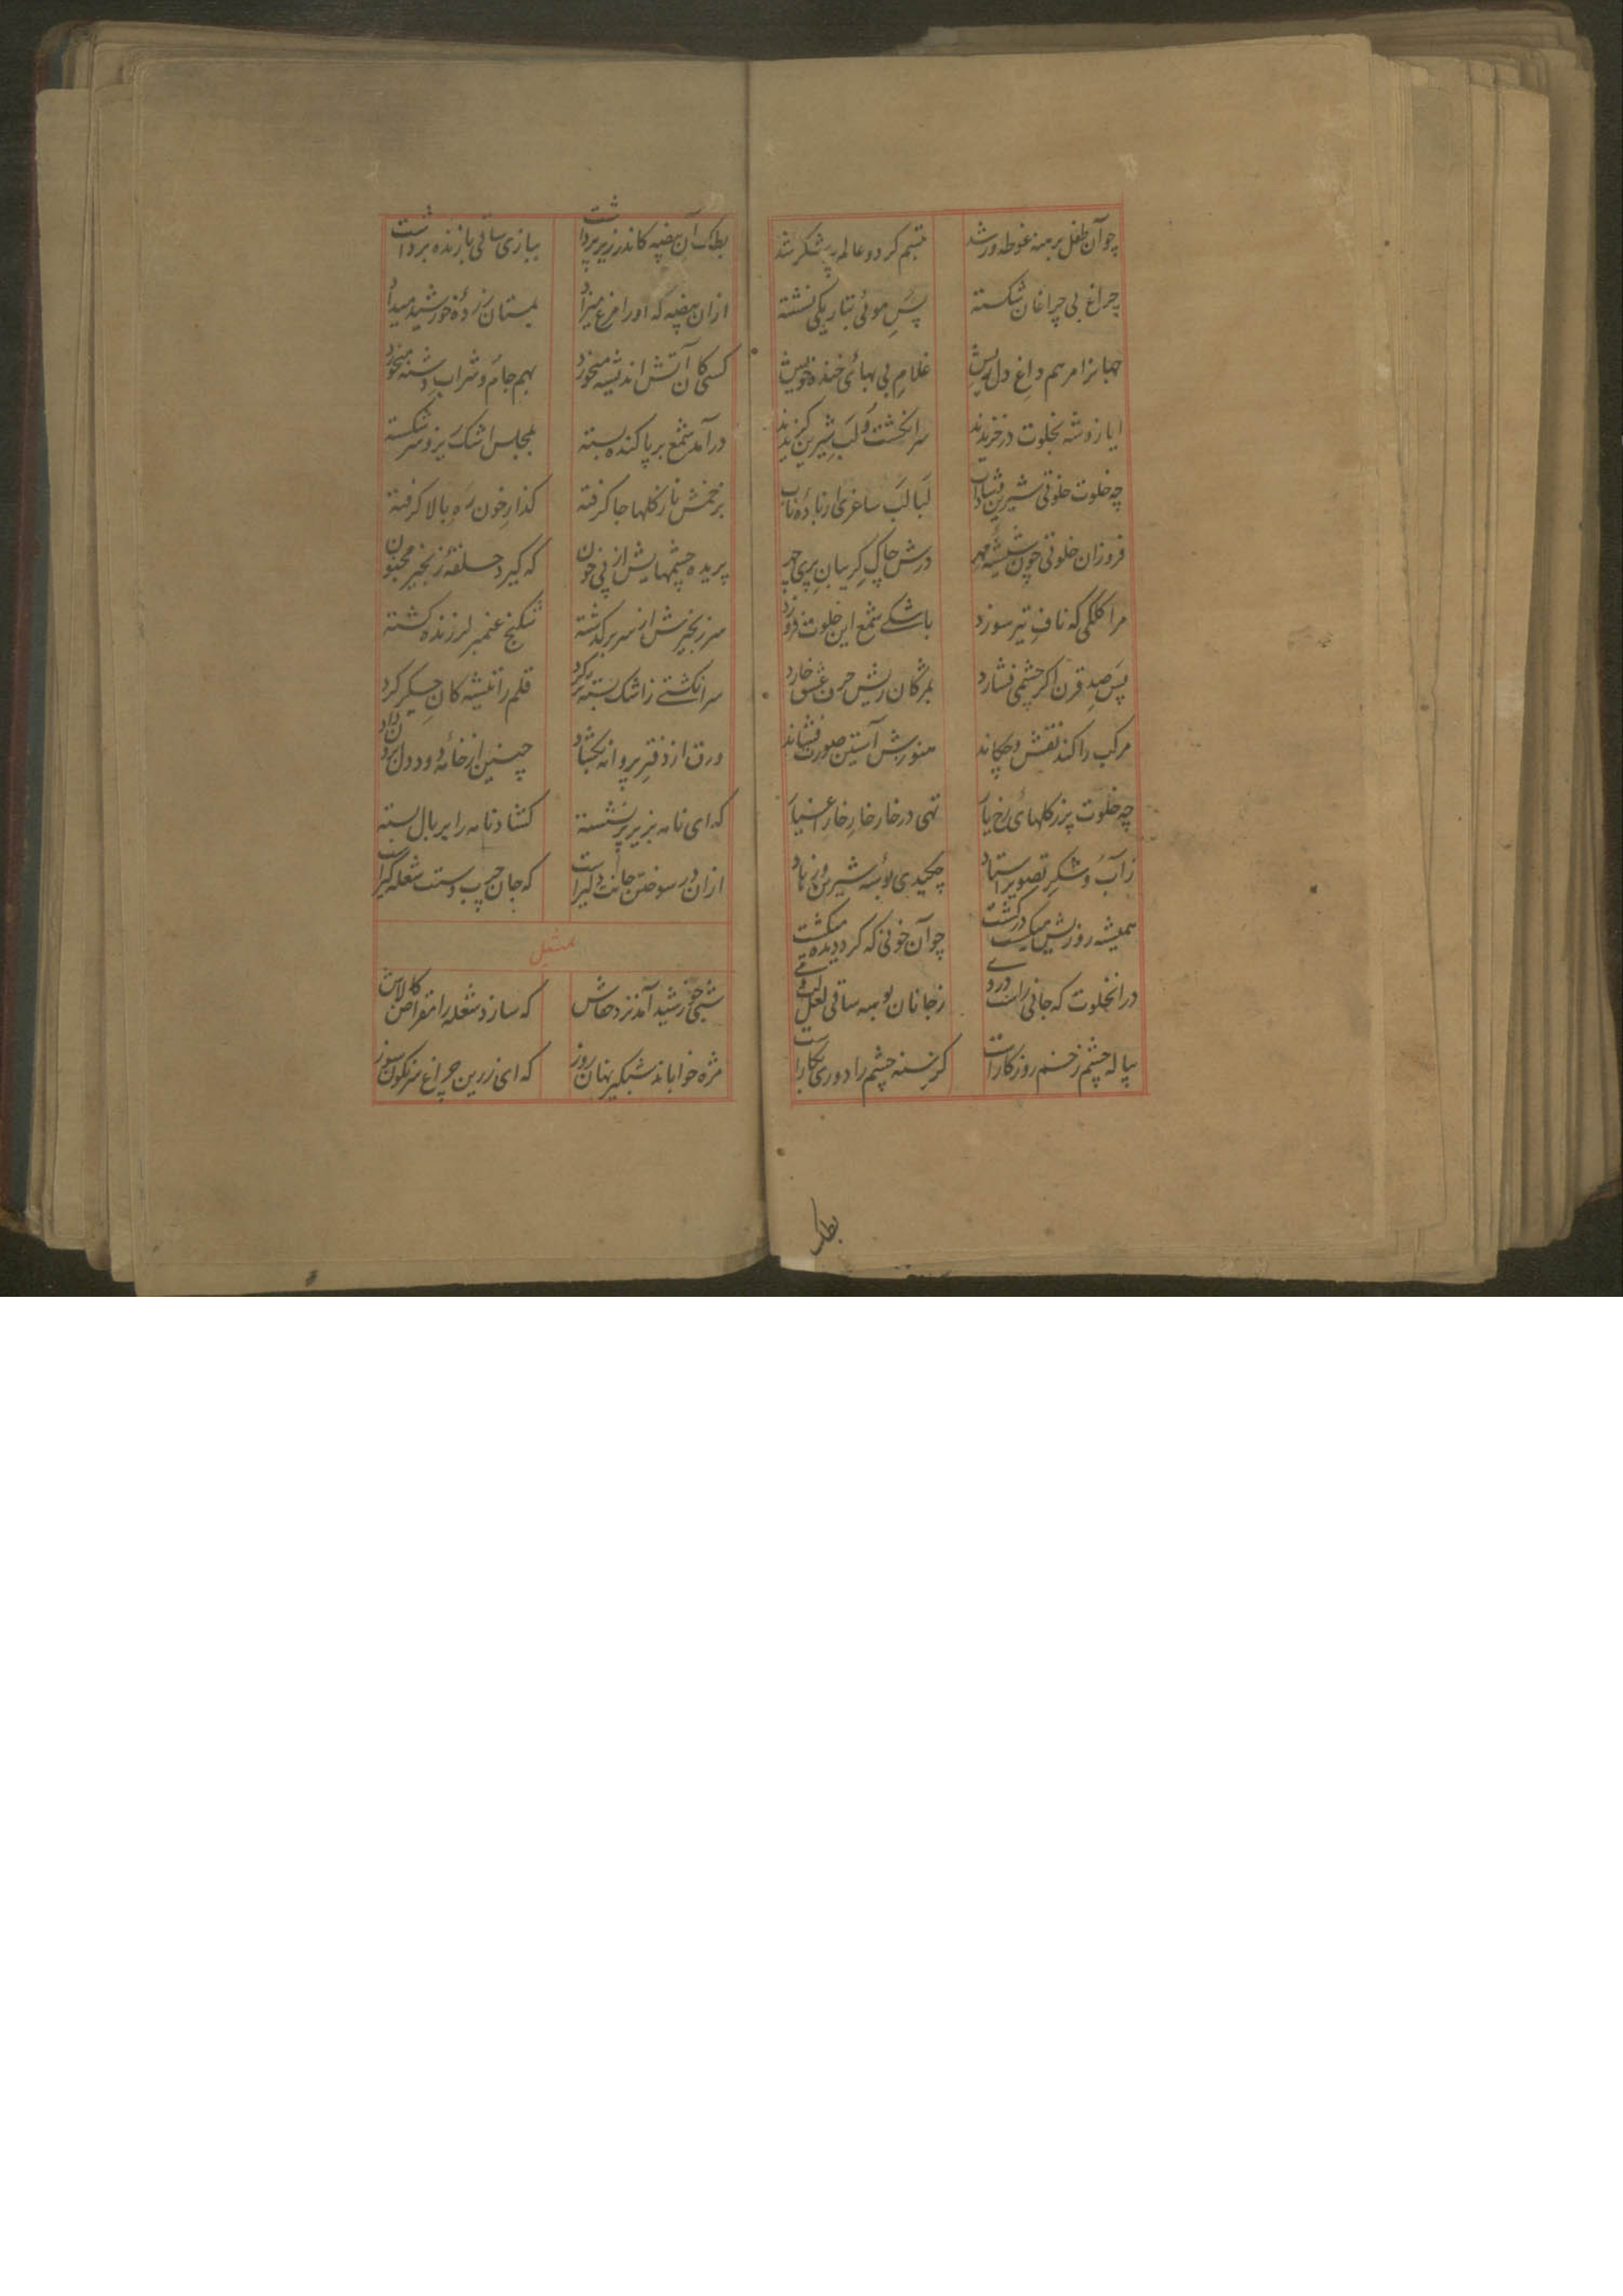 چو آن طفل برهنه غوطه ور شد تبسم کرد و عالم پر شکر شد
چراغ بی چراغان شکسته پس موئی بتاریکی نشسته
جهانرا مرهم داغ دل ریش غلام بی بهای خنده خویش
ایاز و شه بخلوت در خزیدند سر انگشت و لب شیرین گزیدند
چه خلوت خلوتی شیرین لبالب ساغری از باده ناب
فروزان خلوتی چون شیشه مهر درش چاک گریبان پری چهر
مرا کلکی که ناف تیر سوزد باشکی شمع این خلوت فروزد
پس صد قرن اگر چشمی فشارد بمژگان ریش حسن عشق خارد
مرکب را کند نقش و چکاند هنورش آستین صورت فشاند
چه خلوت پر ز گلهای رخ یار تهی در خار خار خار اغیار
ز آب و شکر تصویر استاد چکیدی بوسه شیرین و از باد
همیشه روزیش میگشت چو آن خونی که گرد دیده میگشت
در انخلوت که جانی راست ز جانان بوسه ساقی لعل
پیاله چشم زخم روزگار است گرسنه چشم را دوری بکار است
بطک
بطک آن بیضه کاندر زیر پر داشت ببازی ساقی بازنده برداشت
ازان بیضه که او را مرغ میزاد بمستان زرده خورشید میداد
کسی کان آتش اندیشه میخورد بهم جام و شراب و شیشه میخورد
در آمد شمع بر پا کنده بسته بمجلس اشک ریز و سر شکسته
بزخمش نازگلها جا گرفته گذار خون ره بالا گرفته
پریده چشمهایش از پی خون که گیرد حلقه زنجیر مجنون
سر زنجیرش از سر بر گذشته شکنج عنبر لرزنده گشته
سر انگشتی ز اشک بسته تر کرد قلم را تیشه کان جگر کرد
ورق از دفتر پروانه بگشاد چنین از خامه دود دل برون داد
که ای نامه بزیر پر نشسته گشاد نامه را پر بال بسته
ازان در سوختن جانت دلیر است که جان چرب و ستت شعله گیر است
تمثیل
شبی خورشید آمد نزد خفاش که سازد شعله را مقراض کالاش
مژه خواباند شبگیر نهان روز که ای زرین چراغ سرنگون سوز